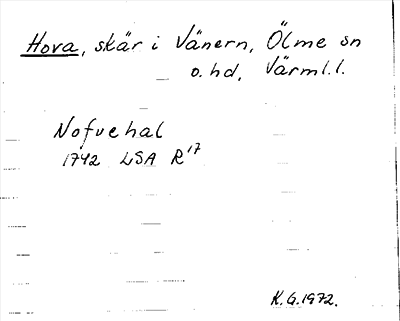 Hova, skär i Vänern, Ölme sn
o. hd, Värml. l.
Nofvehal
1742 LSA R¹⁷
K.G. 1972.